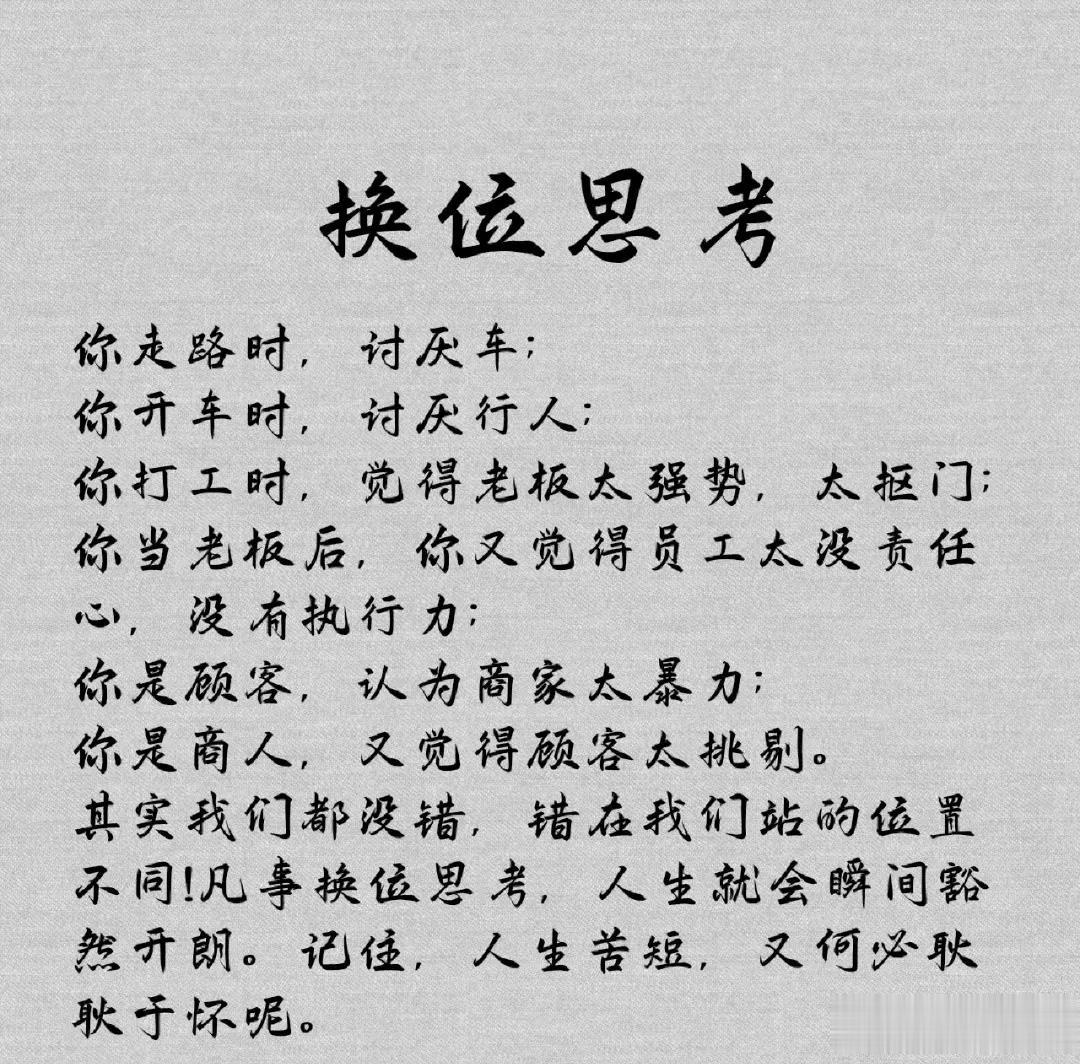 换位思考
你走路时，讨厌车；
你开车时，讨厌行人；
你打工时，觉得老板太强势，太抠门；
你当老板后，你又觉得员工太没责任
心，没有执行力；
你是顾客，认为商家太暴力；
你是商人，又觉得顾客太挑剔。
其实我们都没错，错在我们站的位置
不同！凡事换位思考，人生就会瞬间豁
然开朗。记住，人生苦短，又何必耿
耿于怀呢。